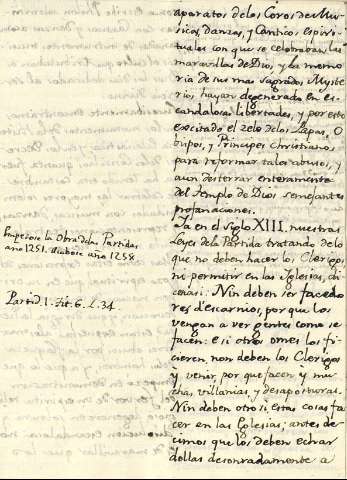 aparatos de los Coros de Mu-
sicos, danzas, y Canticos espiri-
tuales con que se celebraban las
maravillas de Dios, y la memo-
ria de sus mas sagrados Myste-
rios, hayan degenerado en es-
candalosas libertades, y por esto
excitado el zelo de los Papas, O-
bispos, y Principes Christianos
para reformar tales abusos, y
aun desterrar enteramente
del Templo de Dios semejantes
profanaciones.
Ya en el siglo XIII. nuestras
Leyes de la Partida tratando de lo
que no deben hacer los Clerigos
ni permitir en las Iglesias, di-
cen asi: Nin deben ser facedo-
res d'escarnios, por que los
vengan a ver gentes como se
facen: e si otros omes los fi-
cieren, non deben los Clerigos
y venir, por que facen y mu-
chas villanias, y desaposturas.
Nin deben otro si estas cosas fa-
cer en las Iglesias; antes de-
cimos que los deben echar
dellas desonradamente a
Empezose la Obra de las Partidas
año 1251. acabose año 1258.
Partid. 1. tit. 6. L. 34.